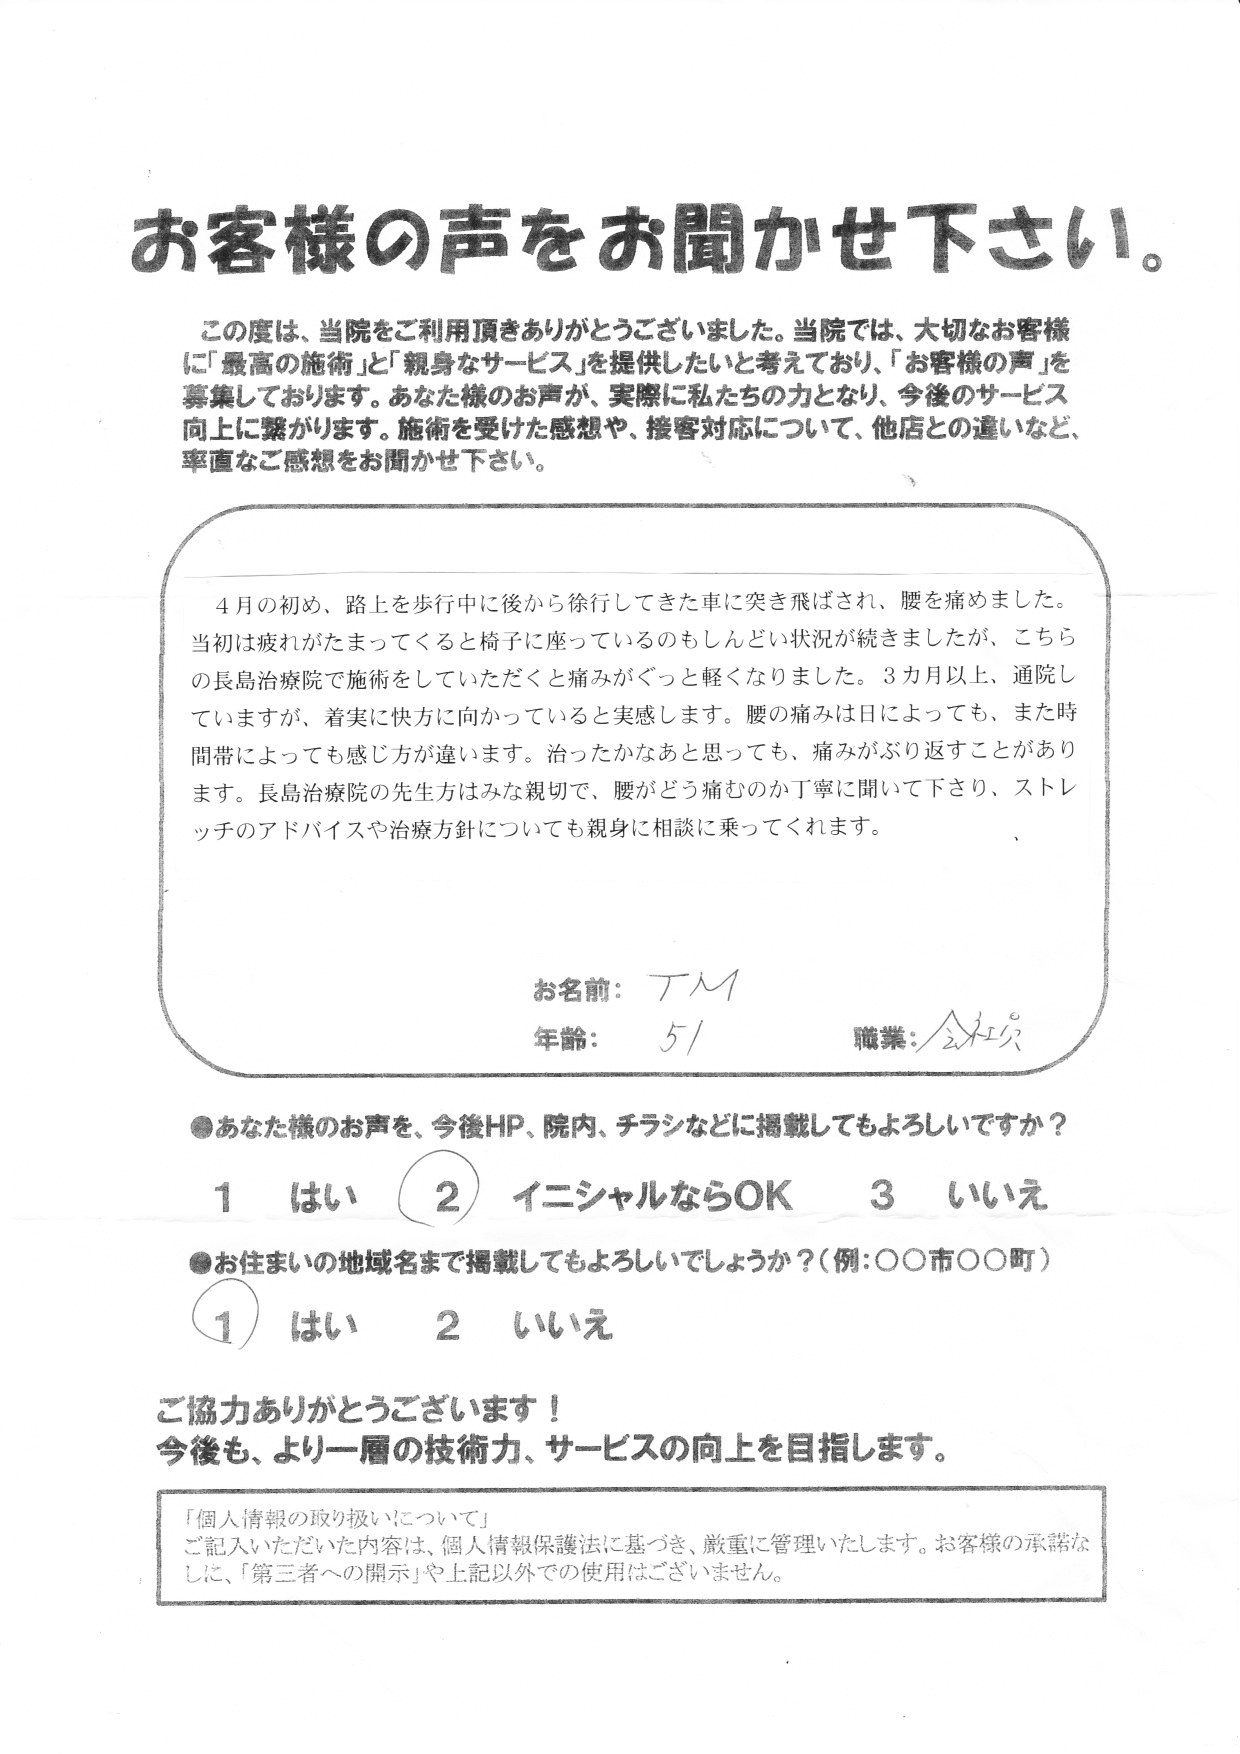 お客様の声をお聞かせ下さい。
この度は、当院をご利用頂きありがとうございました。当院では、大切なお客様
に「最高の施術」と「親身なサービス」を提供したいと考えており、「お客様の声」を
募集しております。あなた様のお声が、実際に私たちの力となり、今後のサービス
向上に繋がります。施術を受けた感想や、接客対応について、他店との違いなど、
率直なご感想をお聞かせ下さい。
４月の初め、路上を歩行中に後から徐行してきた車に突き飛ばされ、腰を痛めました。
当初は疲れがたまってくると椅子に座っているのもしんどい状況が続きましたが、こちら
の長島治療院で施術をしていただくと痛みがぐっと軽くなりました。３カ月以上、通院し
ていますが、着実に快方に向かっていると実感します。腰の痛みは日によっても、また時
間帯によっても感じ方が違います。治ったかなあと思っても、痛みがぶり返すことがあり
ます。長島治療院の先生方はみな親切で、腰がどう痛むのか丁寧に聞いて下さり、ストレ
ッチのアドバイスや治療方針についても親身に相談に乗ってくれます。
お名前： TM
年齢： 51 職業： 会社員
●あなた様のお声を、今後HP、院内、チラシなどに掲載してもよろしいですか？
1 はい 2 イニシャルならOK 3 いいえ
●お住まいの地域名まで掲載してもよろしいでしょうか？（例：〇〇市〇〇町）
1 はい 2 いいえ
ご協力ありがとうございます！
今後も、より一層の技術力、サービスの向上を目指します。
「個人情報の取り扱いについて」
ご記入いただいた内容は、個人情報保護法に基づき、厳重に管理いたします。お客様の承諾な
しに、「第三者への開示」や上記以外での使用はございません。